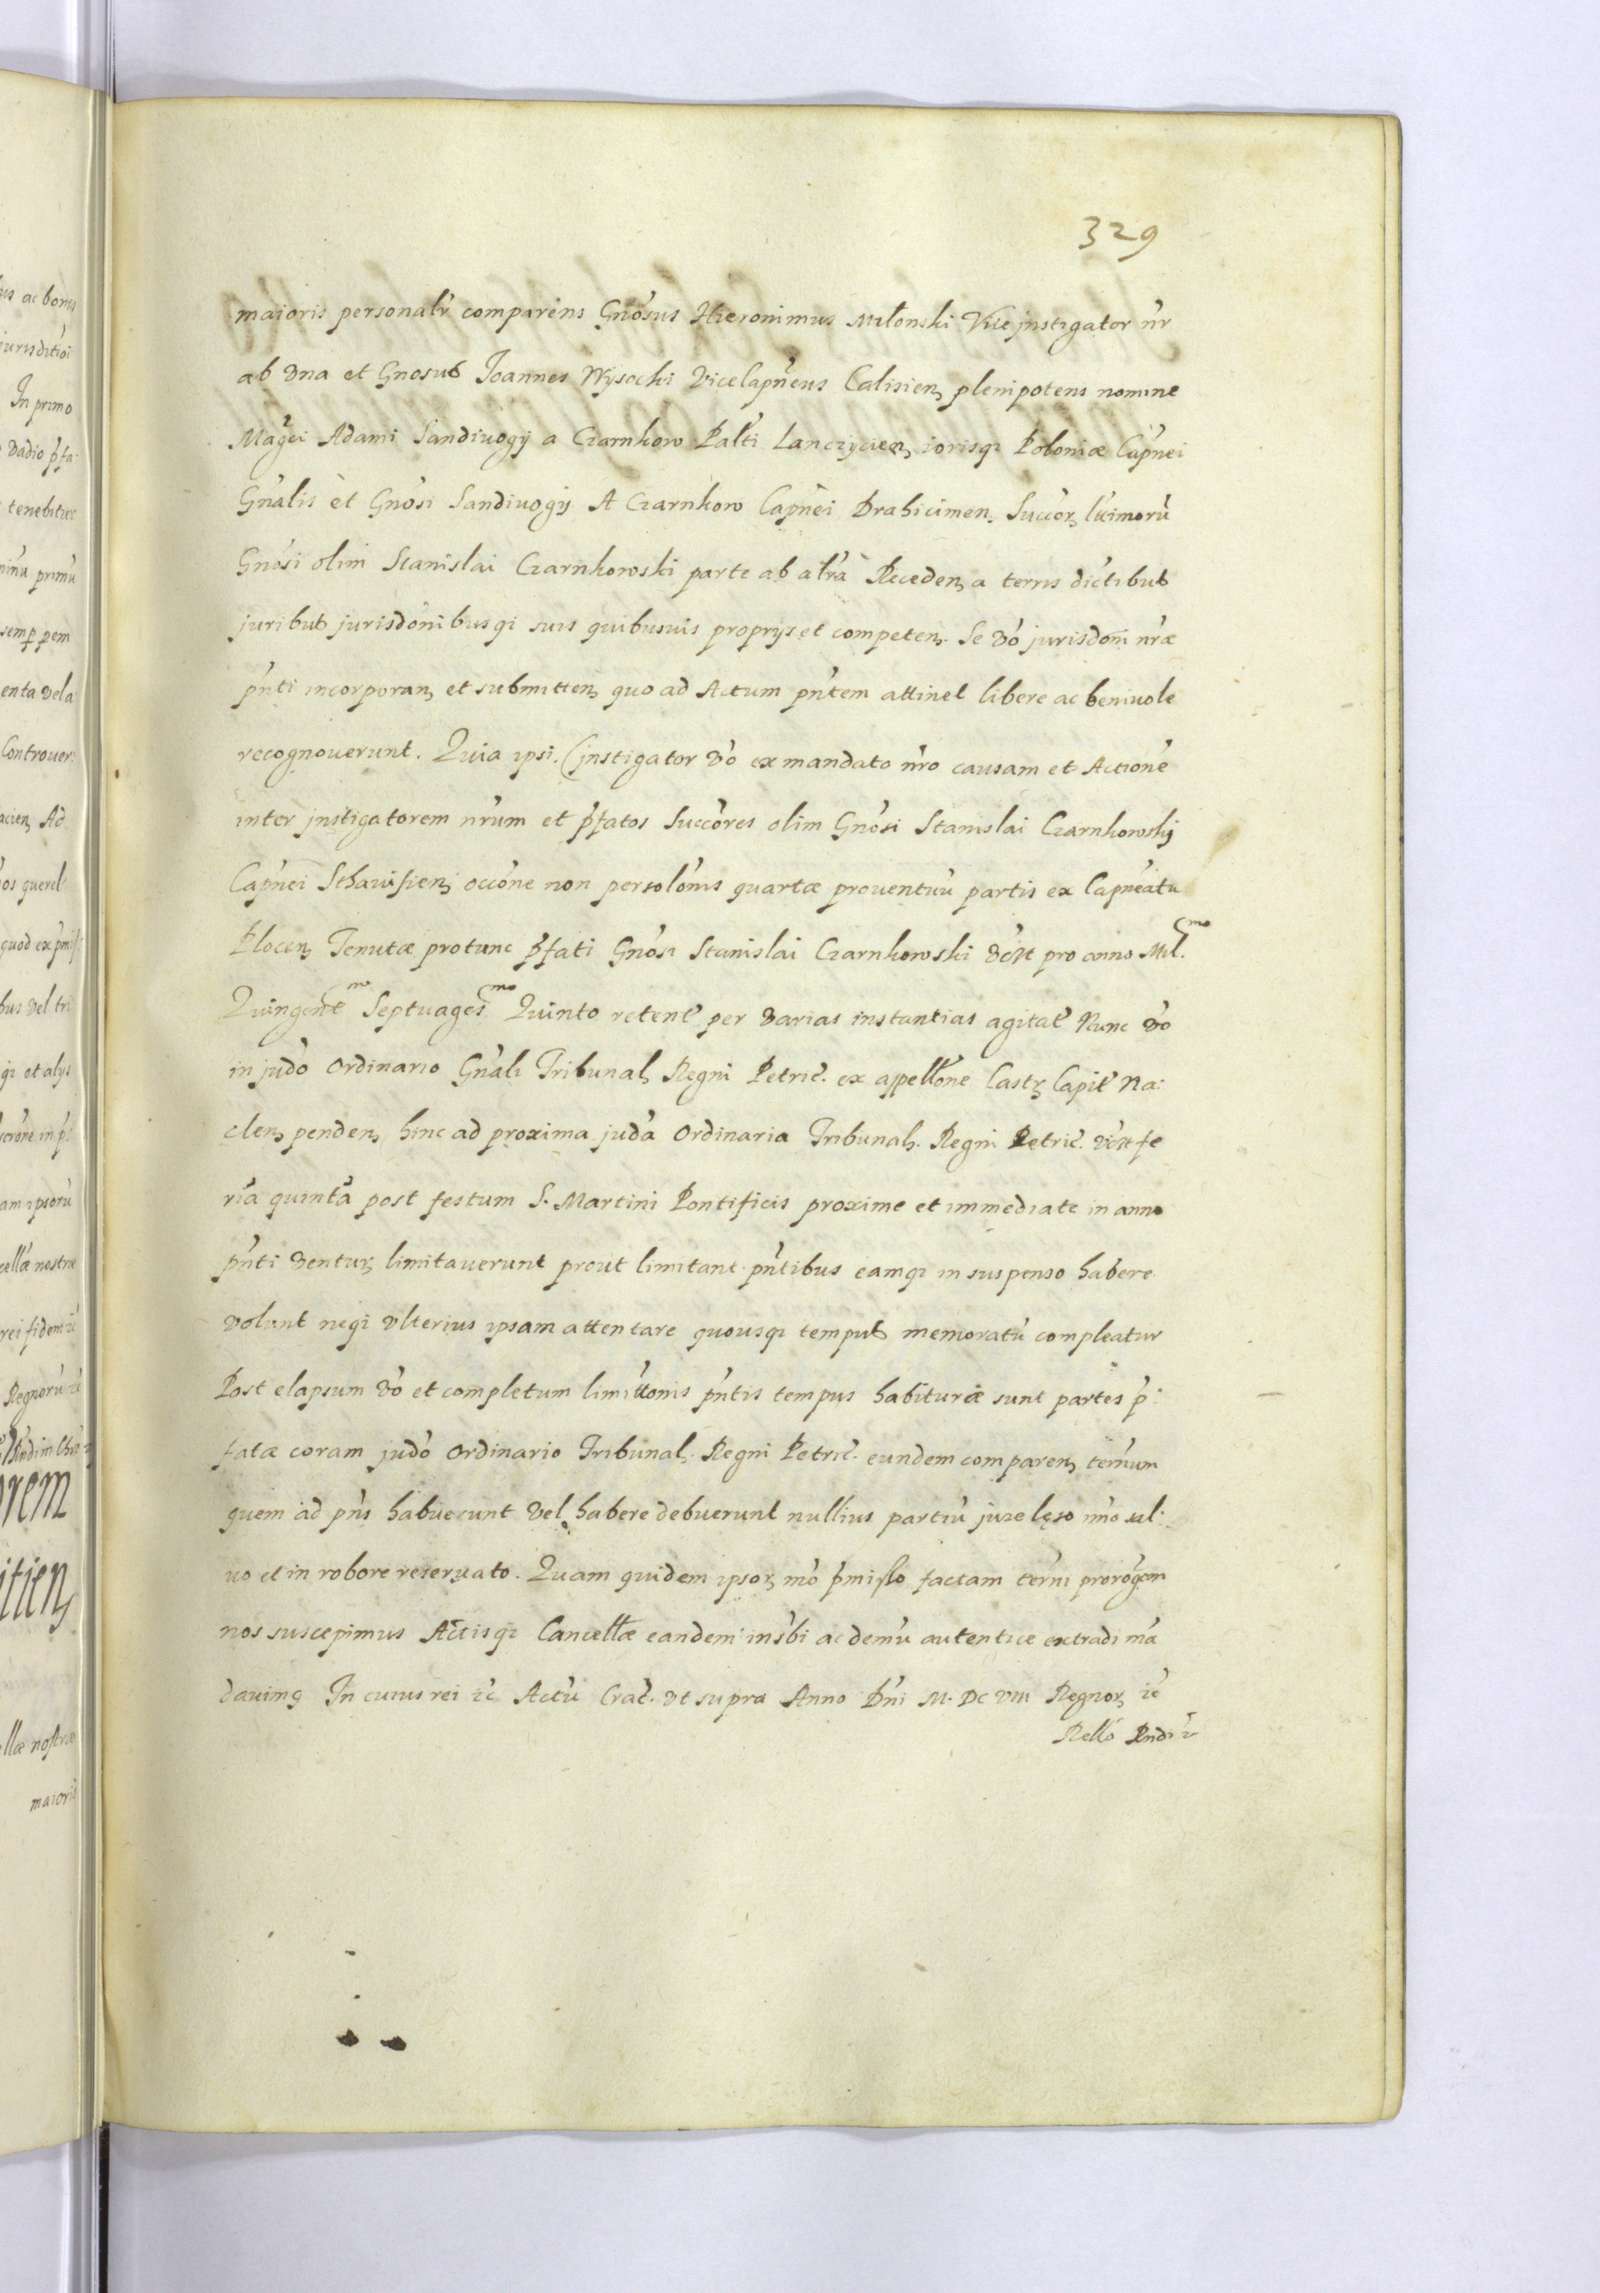 329
maioris personalr comparens Gnosus Hieronimus Milonski Vice jnstigator nr
ab Vna et Gnosus Joannes Wysocki ViceCapneus Calisien, plenipotens nomine
Magci Adami Sandiuogij a Czarnkow Palti Lancicien, iorisq Poloniæ Capnei
Gnalis et Gnosi Sandiuogij A Czarnkow Capnei Drahicimen. Succor,
Gnosi olim Stanislai Czarnkowski parte ab altra Receden, a terris dictibus
juribus jurisdonibusq suis quibusuis proprijs et competen. Se vo jurisdoni nræ
pnti incorporan, et submitten, quo ad Actum pntem attinet libere ac beniuole
recognouerunt. Quia ipsi. (jnstigator vo ex mandato nro causam et Actione
inter jnstigatorem nrum et pfatos Succores olim Gnosi Stanislai Czarnkowskij
Capnei occone non persolonis quartæ prouentuu partis ex Capneatu
Plocen, Tenutæ protunc pfati Gnosi Stanislai Czarnkowski vczt pro anno Mil.mo
Quingentmo Septuagesmo Quinto retent per varias instantias agitat Nunc vo
in judo Ordinario Gnali Tribunal, Regni Petric. ex appellone Castr, Capit Na:
clen, penden, hinc ad proxima juda Ordinaria Tribunal. Regni Petric. vczt fe
ria quinta post festum S. Martini Pontificis proxime et immediate in anno
pnti ventur, limitauerunt prout limitant pntibus eamq in suspenso habere
volunt neqi vlterius ipsam attentare quousqi tempus memoratu compleatur
Post elapsum vo et completum limittonis pntis tempus habituræ sunt partes p:
fatæ coram judo Ordinario Tribunal, Regni Petric. eundem comparen, temum
quem ad pns habuerunt vel habere debuerunt nullius partiu jure lęso imo sal:
uo et in robore reseruato. Quam quidem ipsor, mo pmisso factam termi prorogem
nos suscepimus Actisqi Cancellæ eandem insbi ac demu autentice extradi ma
dauimq In cuius rei zc Actu Crac. vt supra Anno Dni M. DC VIII Regnor, zc
Rello